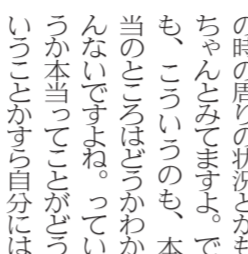 の時の周りの状況とかも
ちゃんとみてますよ。で
も、こういうのも、本
当のところはどうかわか
んないですよね。ってい
うか本当ってことがどう
いうことかすら自分には